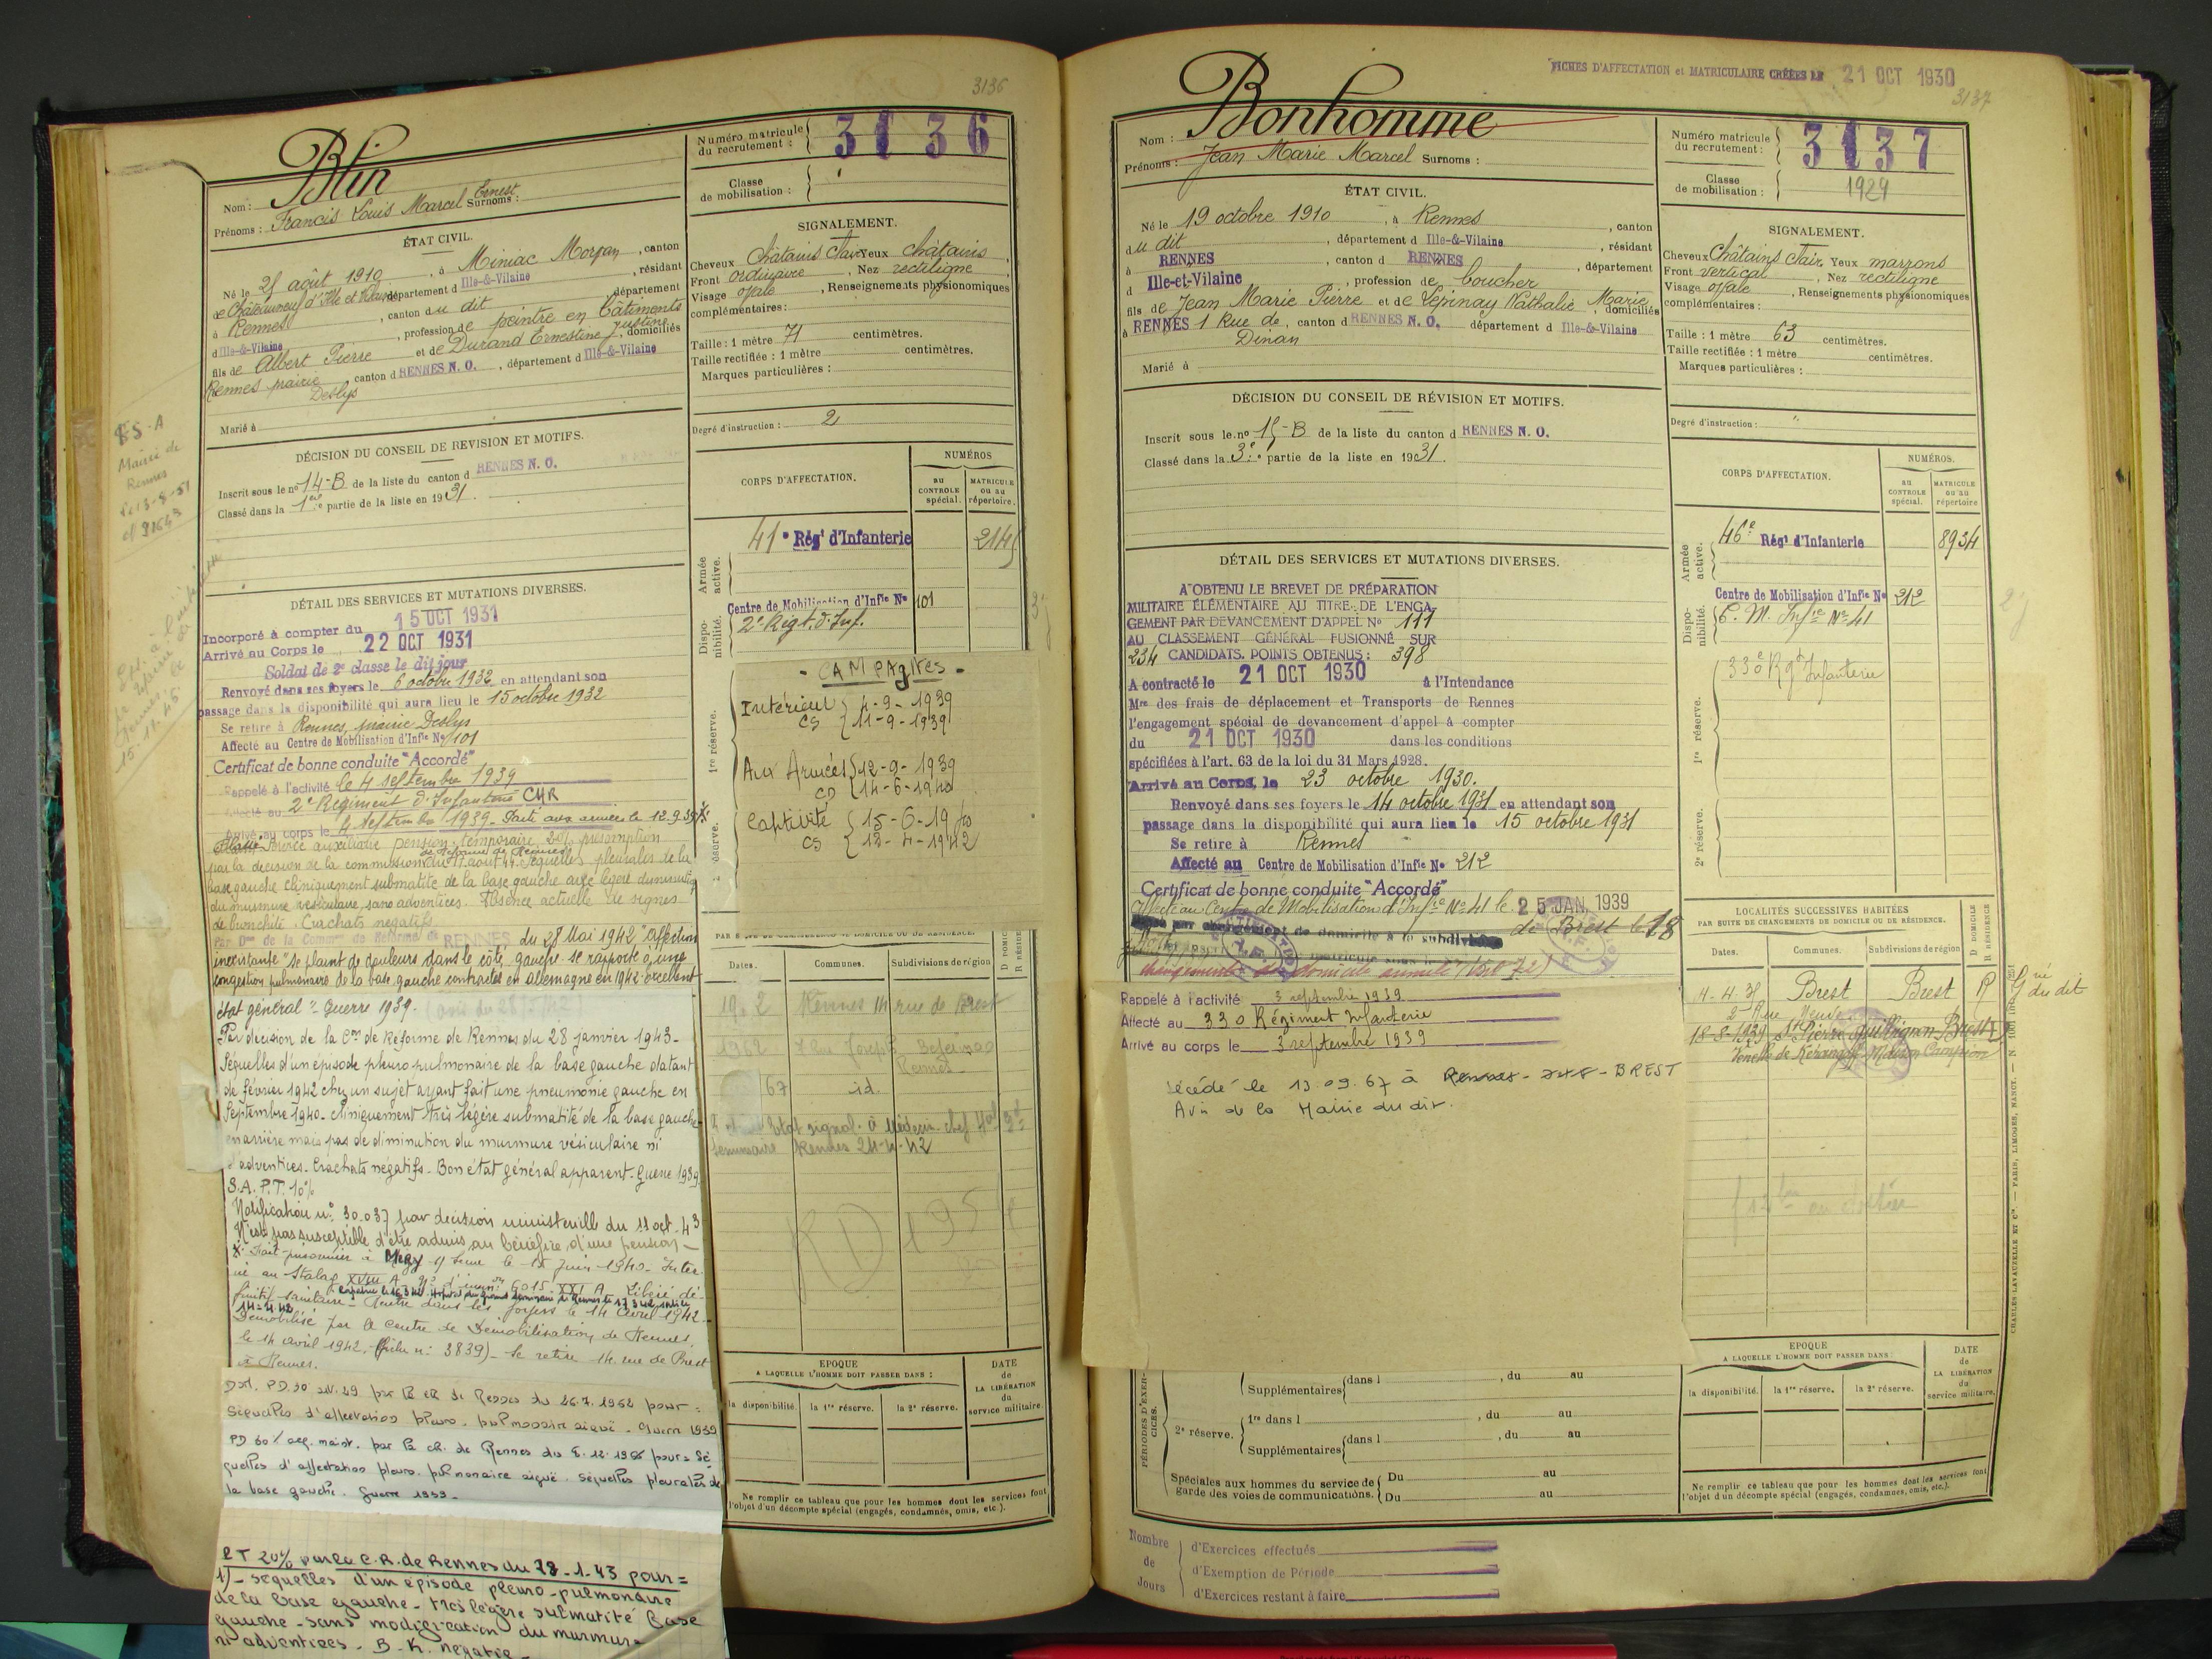 3136
Blin
Nom :
Prénoms : Francis Louis Marcel Ernest Surnoms :
Numéro matricule du recrutement : 3136
Classe de mobilisation :
ÉTAT CIVIL.
Né le 25 août 1910, à Miniac Morvan, canton
de Châteauneuf d'Ille et Vilaine département d Ille-&-Vilaine, résidant
à Rennes, canton du dit, département
d Ille-&-Vilaine, profession de peintre en bâtiments
fils de Albert Pierre et de Durand Ernestine Justine, domiciliés
Rennes prairie Deslys, canton d RENNES N. O., département d Ille-&-Vilaine
Marié à
SIGNALEMENT.
Cheveux Châtains clair Yeux châtains
Front ordinaire, Nez rectiligne
Visage ovale, Renseignements physionomiques
complémentaires :
Taille : 1 mètre 71 centimètres.
Taille rectifiée : 1 mètre centimètres.
Marques particulières :
Degré d'instruction : 2
DÉCISION DU CONSEIL DE RÉVISION ET MOTIFS.
Inscrit sous le nº 14-B de la liste du canton d RENNES N. O.
Classé dans la 1ère partie de la liste en 1931.
Mairie de
Rennes
CORPS D'AFFECTATION.
NUMÉROS
au CONTROLE spécial.
MATRICULE ou au répertoire.
Armée active.
41e Régt d'Infanterie 2145
Disponibilité.
Centre de Mobilisation d'Infie Nº 101
2e Régt. d'Inf.
1re réserve.
- CAMPAgNes -
Intérieur 4-9-1939
CS 11-9-1939
Aux Armées 12-9-1939
CD 14-6-1940
Captivité 15-6-19
CS 13-4-1942
DÉTAIL DES SERVICES ET MUTATIONS DIVERSES.
Incorporé à compter du 15 OCT 1931
Arrivé au Corps le 22 OCT 1931
Soldat de 2e classe le dit jour
Renvoyé dans ses foyers le 6 octobre 1932 en attendant son
passage dans la disponibilité qui aura lieu le 15 octobre 1932
Se retire à Rennes, prairie Deslys
Affecté au Centre de Mobilisation d'Infie Nº 101
Certificat de bonne conduite "Accordé"
Rappelé à l'activité le 4 septembre 1939
Affecté au 2e Régiment d'Infanterie CHR
Arrivé au corps le 4 septembre 1939 - Parti aux armées le 12.9.39
Classé service auxiliaire pension temporaire 20% présomption
par la décision de la commission de réforme de Rennes du 17 août 44. Séquelles pleurales de la
base gauche cliniquement submatité de la base gauche avec légère diminution
du murmure vésiculaire, sans adventices. Absence actuelle de signes
de bronchite. Crachats négatifs.
Par Don de la Common de Réforme de RENNES du 28 Mai 1942 "Affection
inexistante" se plaint de douleurs dans le côté gauche se rapporte à une
congestion pulmonaire de la base gauche contractée en Allemagne en 1942 - excellent
état général". Guerre 1939.
Par décision de la Con de Réforme de Rennes du 28 janvier 1943 -
Séquelles d'un épisode pleuro pulmonaire de la base gauche datant
de février 1942 chez un sujet ayant fait une pneumonie gauche en
Septembre 1940 - cliniquement très légère submatité de la base gauche
en arrière mais pas de diminution du murmure vésiculaire ni
d'adventices - Crachats négatifs - Bon état général apparent - Guerre 1939
S.A. P.T. 10%
Notification nº 30.037 par décision ministérielle du 11 oct. 43
N'est pas susceptible d'être admis au bénéfice d'une pension -
Fait prisonnier à Méry s/ Seine le 15 Juin 1940 - Inter-
né au Stalag XVIII A - Nº d'immon 6015 - XXI A Libéré dé-
finitif sanitaire -
Rentré dans ses foyers le 14 Avril 1942 -
14-4-42
Démobilisé par le Centre de Démobilisation de Rennes,
le 14 avril 1942. (fiche nº 3839) - Se retire 14, rue de Brest
à Rennes.
par la CR de Rennes du 26.7.1962 pour =
Séquelles d'affectation pleuro-pulmonaire aiguë - Guerre 1939
par la CR. de Rennes du 6.12.1966 pour = Sé-
quelles d'affectation pleuro-pulmonaire aiguë. Séquelles pleurales de
la base gauche. Guerre 1939 -
PT 20% par la C.R. de Rennes du 28-1-43 pour =
1) - séquelles d'un épisode pleuro-pulmonaire
de la base gauche - très légère submatité base
gauche - sans modification du murmure
ni adventices - B-K. négatif -
Dates.
Communes.
Subdivisions de région
Rennes 14 rue de Brest
1962
Rennes
67 id.
Rennes 24-4-42
EPOQUE
A LAQUELLE L'HOMME DOIT PASSER DANS :
la disponibilité.
la 1re réserve.
la 2e réserve.
DATE de LA LIBÉRATION du service militaire.
Ne remplir ce tableau que pour les hommes dont les services font
l'objet d'un décompte spécial (engagés, condamnés, omis, etc.).
FICHES D'AFFECTATION et MATRICULAIRE CRÉÉES LE 21 OCT 1930
3137
Nom : Bonhomme
Prénoms : Jean Marie Marcel Surnoms :
Numéro matricule du recrutement : 3137
Classe de mobilisation : 1929
ÉTAT CIVIL.
Né le 19 octobre 1910, à Rennes, canton
du dit, département d Ille-&-Vilaine, résidant
à RENNES, canton d RENNES, département
d Ille-et-Vilaine, profession de boucher
fils de Jean Marie Pierre et de Lépinay Nathalie Marie, domiciliés
à RENNES 1 Rue de Dinan, canton d RENNES N. O. département d Ille-&-Vilaine
Marié à
SIGNALEMENT.
Cheveux Châtains clair, Yeux marrons
Front vertical, Nez rectiligne
Visage ovale, Renseignements physionomiques
complémentaires :
Taille : 1 mètre 63 centimètres.
Taille rectifiée : 1 mètre centimètres.
Marques particulières :
Degré d'instruction : "
DÉCISION DU CONSEIL DE RÉVISION ET MOTIFS.
Inscrit sous le nº 15-B de la liste du canton d RENNES N. O.
Classé dans la 3e partie de la liste en 1931.
CORPS D'AFFECTATION.
NUMÉROS.
au CONTROLE spécial.
MATRICULE ou au répertoire
Armée active.
46e Régt d'Infanterie 8934
Disponibilité.
Centre de Mobilisation d'Infie Nº 212
C. M. Infie Nº 41
1re réserve.
330e Rgt Infanterie
2e réserve.
DÉTAIL DES SERVICES ET MUTATIONS DIVERSES.
A OBTENU LE BREVET DE PRÉPARATION
MILITAIRE ÉLÉMENTAIRE AU TITRE DE L'ENGA-
GEMENT PAR DEVANCEMENT D'APPEL Nº 111
AU CLASSEMENT GÉNÉRAL FUSIONNÉ SUR
234 CANDIDATS. POINTS OBTENUS : 398
A contracté le 21 OCT 1930 à l'Intendance
Mre des frais de déplacement et Transports de Rennes
l'engagement spécial de devancement d'appel à compter
du 21 OCT 1930 dans les conditions
spécifiées à l'art. 63 de la loi du 31 Mars 1928.
Arrivé au Corps, le 23 octobre 1930.
Renvoyé dans ses foyers le 14 octobre 1931 en attendant son
passage dans la disponibilité qui aura lieu le 15 octobre 1931
Se retire à Rennes
Affecté au Centre de Mobilisation d'Infie Nº 212
Certificat de bonne conduite "Accordé"
Affecté au Centre de Mobilisation d'Infie Nº 41 le 25 JAN. 1939
par changement de domicile à la subdivision de Brest le 18
changement de domicile annulé
Rappelé à l'activité 3 septembre 1939
Affecté au 330 Régiment Infanterie
Arrivé au corps le 3 septembre 1939
décédé le 13.09.67 à Rennes - BREST
Avis de la Mairie du dit.
LOCALITÉS SUCCESSIVES HABITÉES
PAR SUITE DE CHANGEMENTS DE DOMICILE OU DE RÉSIDENCE.
Dates.
Communes.
Subdivisions de région
D DOMICILE
R RÉSIDENCE
4-4-35 Brest Brest R
18-8-1939 St Pierre Quilbignon Brest
CHARLES-LAVAUZELLE ET Cie — PARIS, LIMOGES, NANCY.
PÉRIODES D'EXERCICES.
Supplémentaires dans l , du au
2e réserve. 1re dans l , du au
Supplémentaires dans l , du au
Spéciales aux hommes du service de
garde des voies de communications.
Du au
Du au
EPOQUE
A LAQUELLE L'HOMME DOIT PASSER DANS :
la disponibilité.
la 1re réserve.
la 2e réserve.
DATE de LA LIBÉRATION du service militaire.
Ne remplir ce tableau que pour les hommes dont les services font
l'objet d'un décompte spécial (engagés, condamnés, omis, etc.).
Nombre de Jours
d'Exercices effectués
d'Exemption de Période
d'Exercices restant à faire